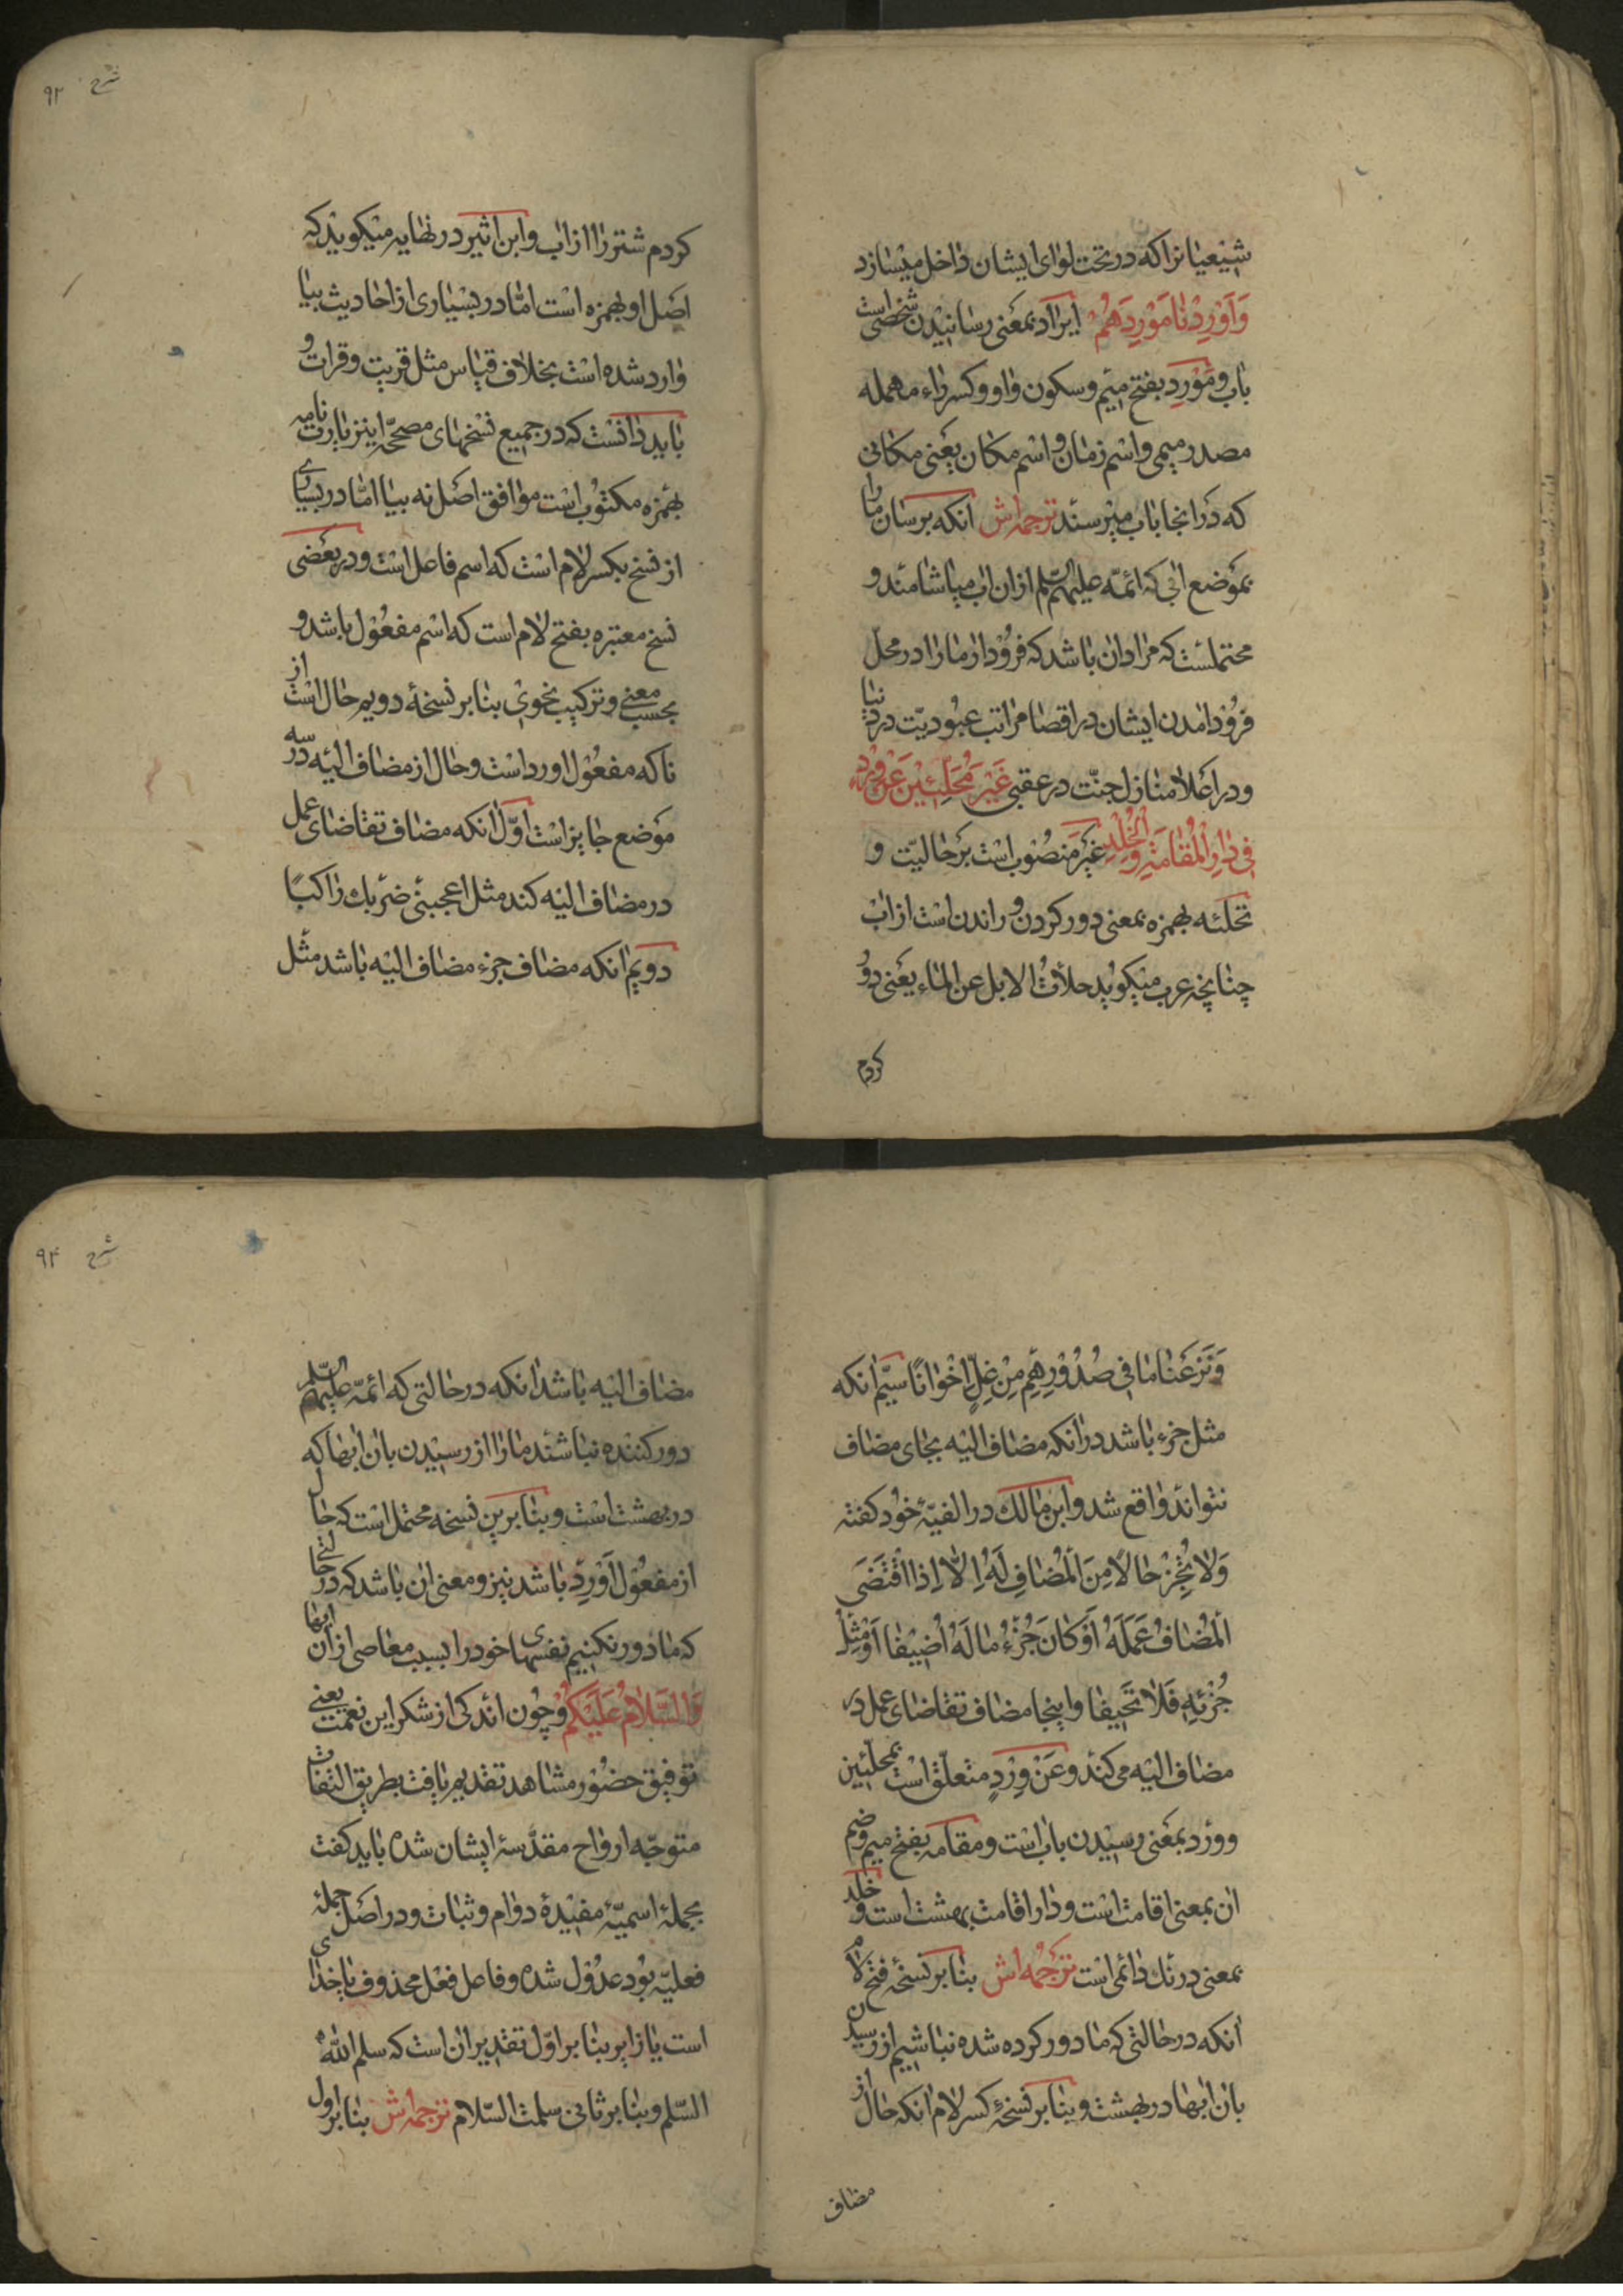 شیعیانرا که در تحت لوای ایشان داخل میسازد
وَاَوْرِدْنا مَوْرِدَهُمْ ایراد بمعنی رسانیدن شخصی است
باب و مَوْرِد بفتح میم و سکون واو و کسر راء مهمله
مصدر میمی و اسم زمان و اسم مکان یعنی مکانی
که در انجا باب میرسند ترجمه اش انکه برسان ما را
بموضع ابی که ائمّه علیهم السّلم از ان اب میاشامند و
محتملست که مراد ان باشد که فرود ار ما را در محلّ
فرود امدن ایشان در اقصا مراتب عبودیّت در دنیا
و در اعلا منازل جنّت در عقبی غَیْرَ مُحَلَّئِیْنَ عَنْ وِرْدٍ
فی دارِ الْمُقامَةِ وَالْخُلْدِ غَیْرَ منصوب است بر حالیّت و
تحلئه بهمزه بمعنی دور کردن و راندن است از اب
چنانچه عرب میکوید حلأت الابل عن الماء یعنی دور
کردم
شرح ۹۳
کردم شتر را از اب و ابن اثیر در نهایه میکوید که
اصل او بهمزه است امّا در بسیاری از احادیث بیا
وارد شده است بخلاف قیاس مثل قریت و قرات و
باید دانست که در جمیع نسخهای مصحّحه این زیارت نامه
بهمزه مکتوب است موافق اصل نه بیا امّا در بسیاری
از نسخ بکسر لام است که اسم فاعل است و در بعضی
نسخ معتبره بفتح لام است که اسم مفعول باشد و
بحسب معنی و ترکیب نحوی بنا بر نسخهٔ دویم حال است از
نا که مفعول اورد است و حال از مضاف الیه در سه
موضع جایز است اوّل انکه مضاف تقاضای عمل
در مضاف الیه کند مثل اعجبنی ضربك راکبًا
دویم انکه مضاف جزء مضاف الیه باشد مثل
وَنَزَعْنا ما فی صُدُوْرِهِمْ مِنْ غِلٍّ اِخْوانًا سیّم انکه
مثل جزء باشد در انکه مضاف الیه بجای مضاف
نتواند واقع شد و ابن مالك در الفیّهٔ خود کفته
وَلا تُجِزْ حالًا مِنَ الْمُضافِ لَهُ اِلّا اِذَا اقْتَضَی
الْمُضافُ عَمَلَهُ اَوْکانَ جُزْءَ ما لَهُ اُضِیْفا اَوْ مِثْلَ
جُزْئِهِ فَلا تَحِیْفا و اینجا مضاف تقاضای عمل در
مضاف الیه می کند و عَنْ وِرْدٍ متعلّق است بمحلّئین
و ورد بمعنی رسیدن باب است و مقامه بفتح میم و ضم
ان بمعنی اقامت است و دار اقامت بهشت است و خلد
بمعنی درنك دائمی است ترجمه اش بنا بر نسخهٔ فتح لام
انکه در حالتی که ما دور کرده شده نباشیم از رسیدن
بان ابها در بهشت و بنا بر نسخهٔ کسر لام انکه حال از
مضاف
شرح ۹۴
مضاف الیه باشد انکه در حالتی که ائمّه علیهم السّلم
دور کننده نباشند ما را از رسیدن بان ابها که
در بهشت است و بنا برین نسخه محتمل است که حال
از مفعول اَوْرِد باشد نیز و معنی ان باشد که در حالتی
که ما دور نکنیم نفسهای خود را بسبب معاصی از ان ابها
وَالسَّلامُ عَلَیْکُمْ و چون اندکی از شکر این نعمت یعنی
توفیق حضور مشاهد تقدیم یافت بطریق التفات
متوجّه ارواح مقدّسهٔ ایشان شده باید کفت
بجملهٔ اسمیّهٔ مفیدهٔ دوام و ثبات و در اصل جملهٔ
فعلیّه بود عدول شده و فاعل فعل محذوف یا خدای
است یا زایر بنا بر اوّل تقدیر ان است که سلم اللّه
السّلم و بنا بر ثانی سلمت السّلام ترجمه اش بنا بر اول